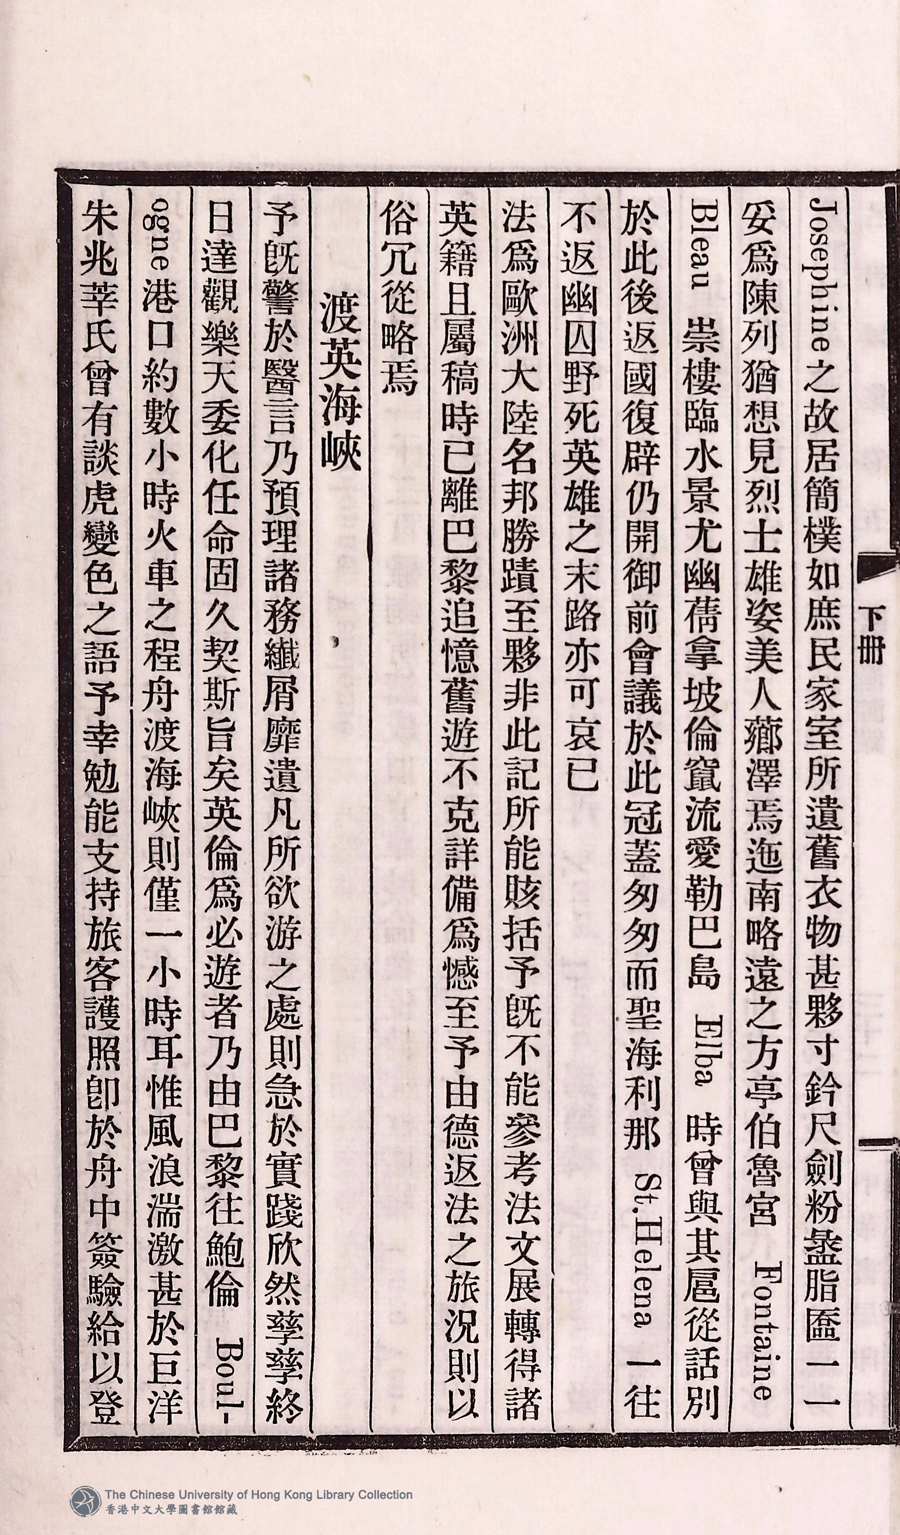 Josephine之故居簡樸如庶民家室所遺舊衣物甚夥寸鈐尺劍粉盝脂匳一一
妥爲陳列猶想見烈士雄姿美人薌澤焉迤南略遠之方亭伯魯宮 Fontaine
Bleau 崇樓臨水景尤幽蒨拿坡倫竄流愛勒巴島 Elba 時曾與其扈從話別
於此後返國復辟仍開御前會議於此冠蓋匆匆而聖海利那 St. Helena 一往
不返幽囚野死英雄之末路亦可哀已
法爲歐洲大陸名邦勝蹟至夥非此記所能賅括予旣不能參考法文展轉得諸
英籍且屬稿時已離巴黎追憶舊遊不克詳備爲憾至予由德返法之旅況則以
俗冗從略焉
渡英海峽
予旣警於醫言乃預理諸務纖屑靡遺凡所欲游之處則急於實踐欣然孳孳終
日達觀樂天委化任命固久契斯旨矣英倫爲必遊者乃由巴黎往鮑倫 Boul-
ogne港口約數小時火車之程舟渡海峽則僅一小時耳惟風浪湍激甚於巨洋
朱兆莘氏曾有談虎變色之語予幸勉能支持旅客護照卽於舟中簽驗給以登
下冊
The Chinese University of Hong Kong Library Collection
香港中文大學圖書館館藏